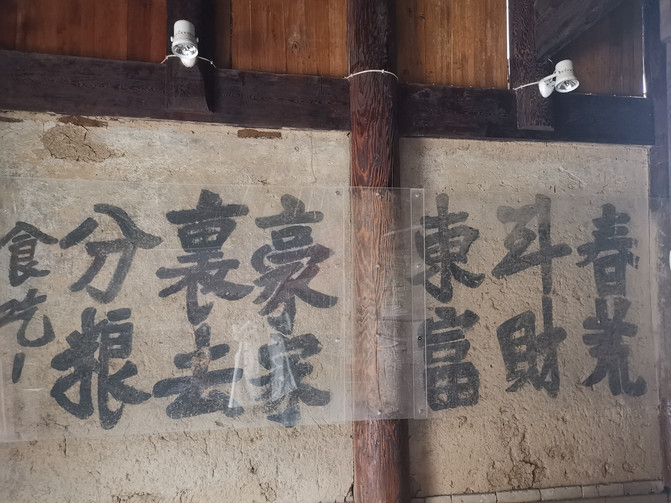 春荒
斗財
東富
豪家
裏去
分粮
食吃!